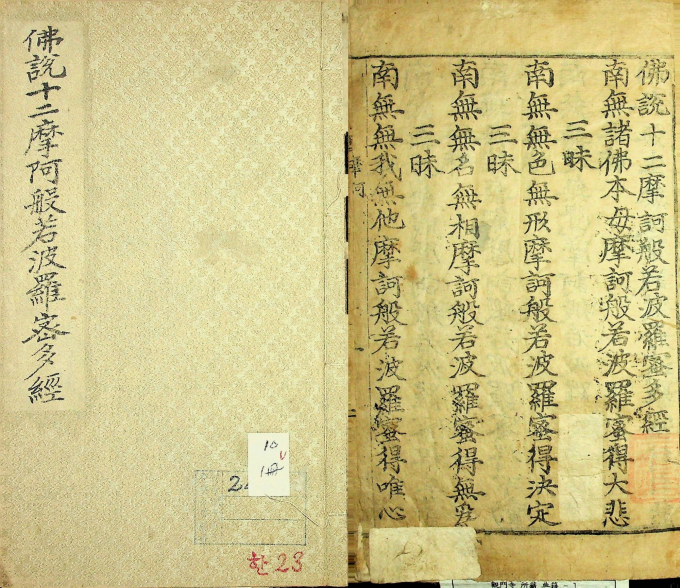 佛說十二摩阿般若波羅密多經
10
1冊
2
한23
佛說十二摩訶般若波羅蜜多經
南無諸佛本母摩訶般若波羅蜜得大悲
三昧
南無無色無形摩訶般若波羅蜜得決定
三昧
南無無名無相摩訶般若波羅蜜得無
三昧
南無無我無他摩訶般若波羅蜜得唯心
摩訶